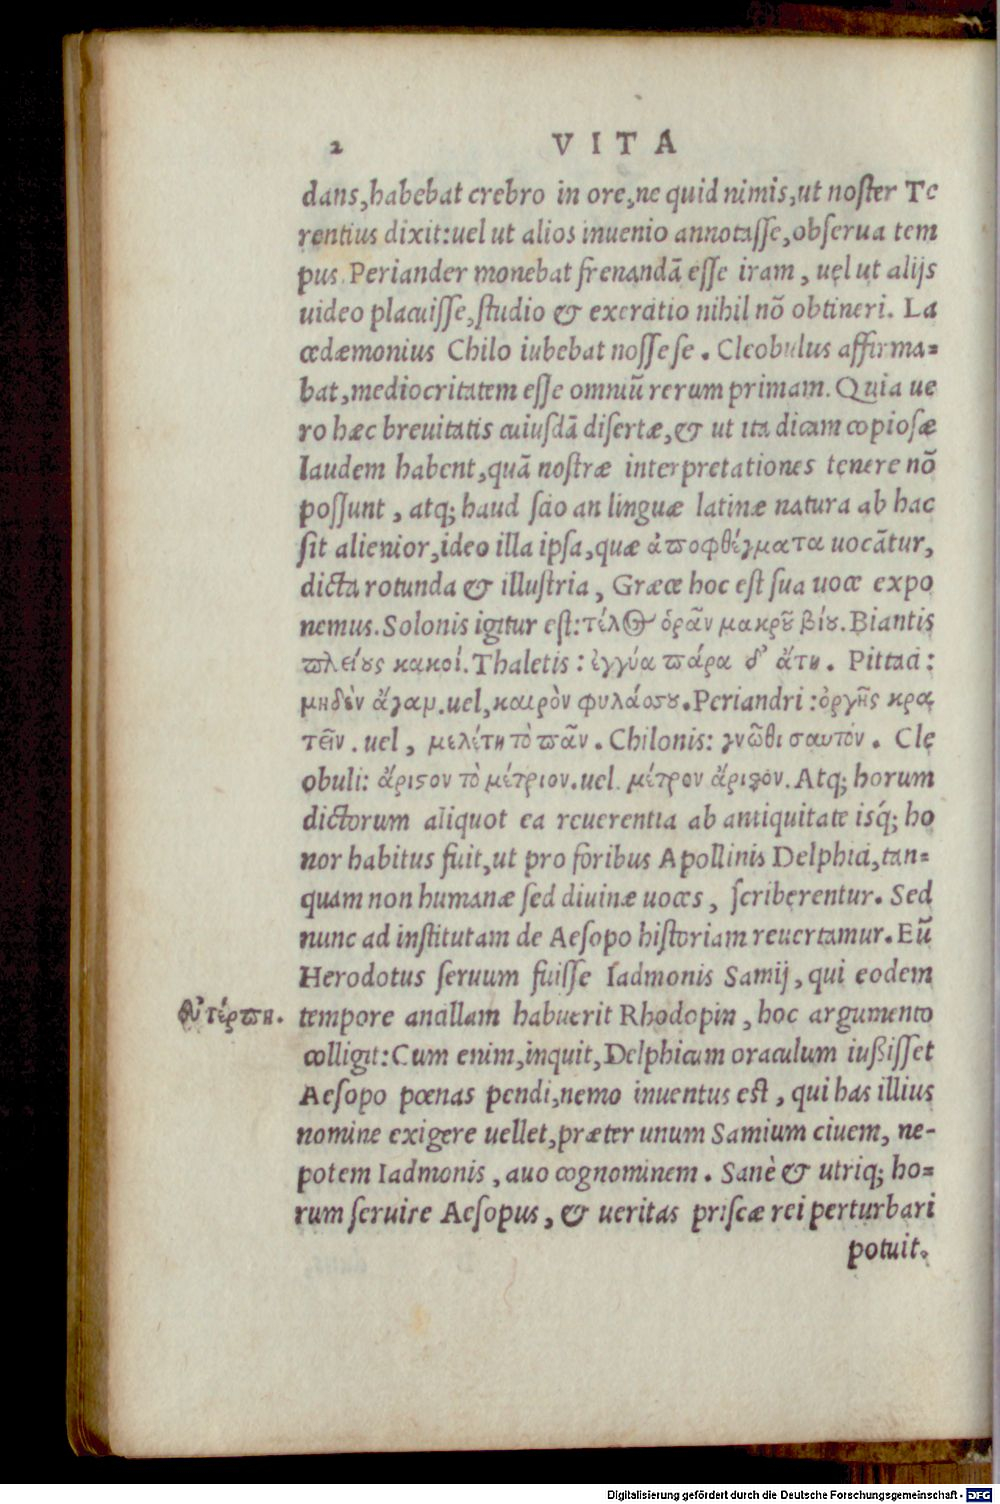 2 VITA
dans, habebat crebro in ore, ne quid nimis, ut noſter Te
rentius dixit: uel ut alios inuenio annotaſſe, obſerua tem
pus. Periander monebat frenandā eſſe iram, uel ut alijs
uideo placuiſſe, ſtudio & exercitatio nihil nō obtineri. La
cedæmonius Chilo iubebat noſſe ſe. Cleobulus affirma=
bat, mediocritatem eſſe omniū rerum primam. Quia ue
ro hæc breuitatis cuiuſdā diſertæ, & ut ita dicam copioſæ
laudem habent, quā noſtræ interpretationes tenere nō
poſſunt, atq; haud ſcio an linguæ latinæ natura ab hac
ſit alienior, ideo illa ipſa, quæ ἀποφθέγματα uocātur,
dicta rotunda & illuſtria, Græce hoc eſt ſua uoce expo
nemus. Solonis igitur eſt: τέλος ὁρᾶν μακροῦ βίου. Biantis
πλείους κακοί. Thaletis: ἐγγύα πάρα δ’ ἄτη. Pittaci:
μηδὲν ἄγαμ. uel, καιρὸν φυλάσσου. Periandri: ὀργῆς κρα
τεῖν. uel, μελέτη τὸ πᾶν. Chilonis: γνῶθι σαυτόν. Cle
obuli: ἄριστον τὸ μέτριον. uel. μέτρον ἄριστον. Atq; horum
dictorum aliquot ea reuerentia ab antiquitate isq́; ho
nor habitus fuit, ut pro foribus Apollinis Delphici, tan=
quam non humanæ ſed diuinæ uoces, ſcriberentur. Sed
nunc ad inſtitutam de Aeſopo hiſtoriam reuertamur. Eū
Herodotus ſeruum fuiſſe Iadmonis Samij, qui eodem
ἐυτέρπη. tempore ancillam habuerit Rhodopin, hoc argumento
colligit: Cum enim, inquit, Delphicum oraculum iußiſſet
Aeſopo pœnas pendi, nemo inuentus eſt, qui has illius
nomine exigere uellet, præter unum Samium ciuem, ne-
potem Iadmonis, auo cognominem. Sanè & utriq; ho=
rum ſeruire Aeſopus, & ueritas priſcæ rei perturbari
potuit.
Digitalisierung gefördert durch die Deutsche Forschungsgemeinschaft - DFG